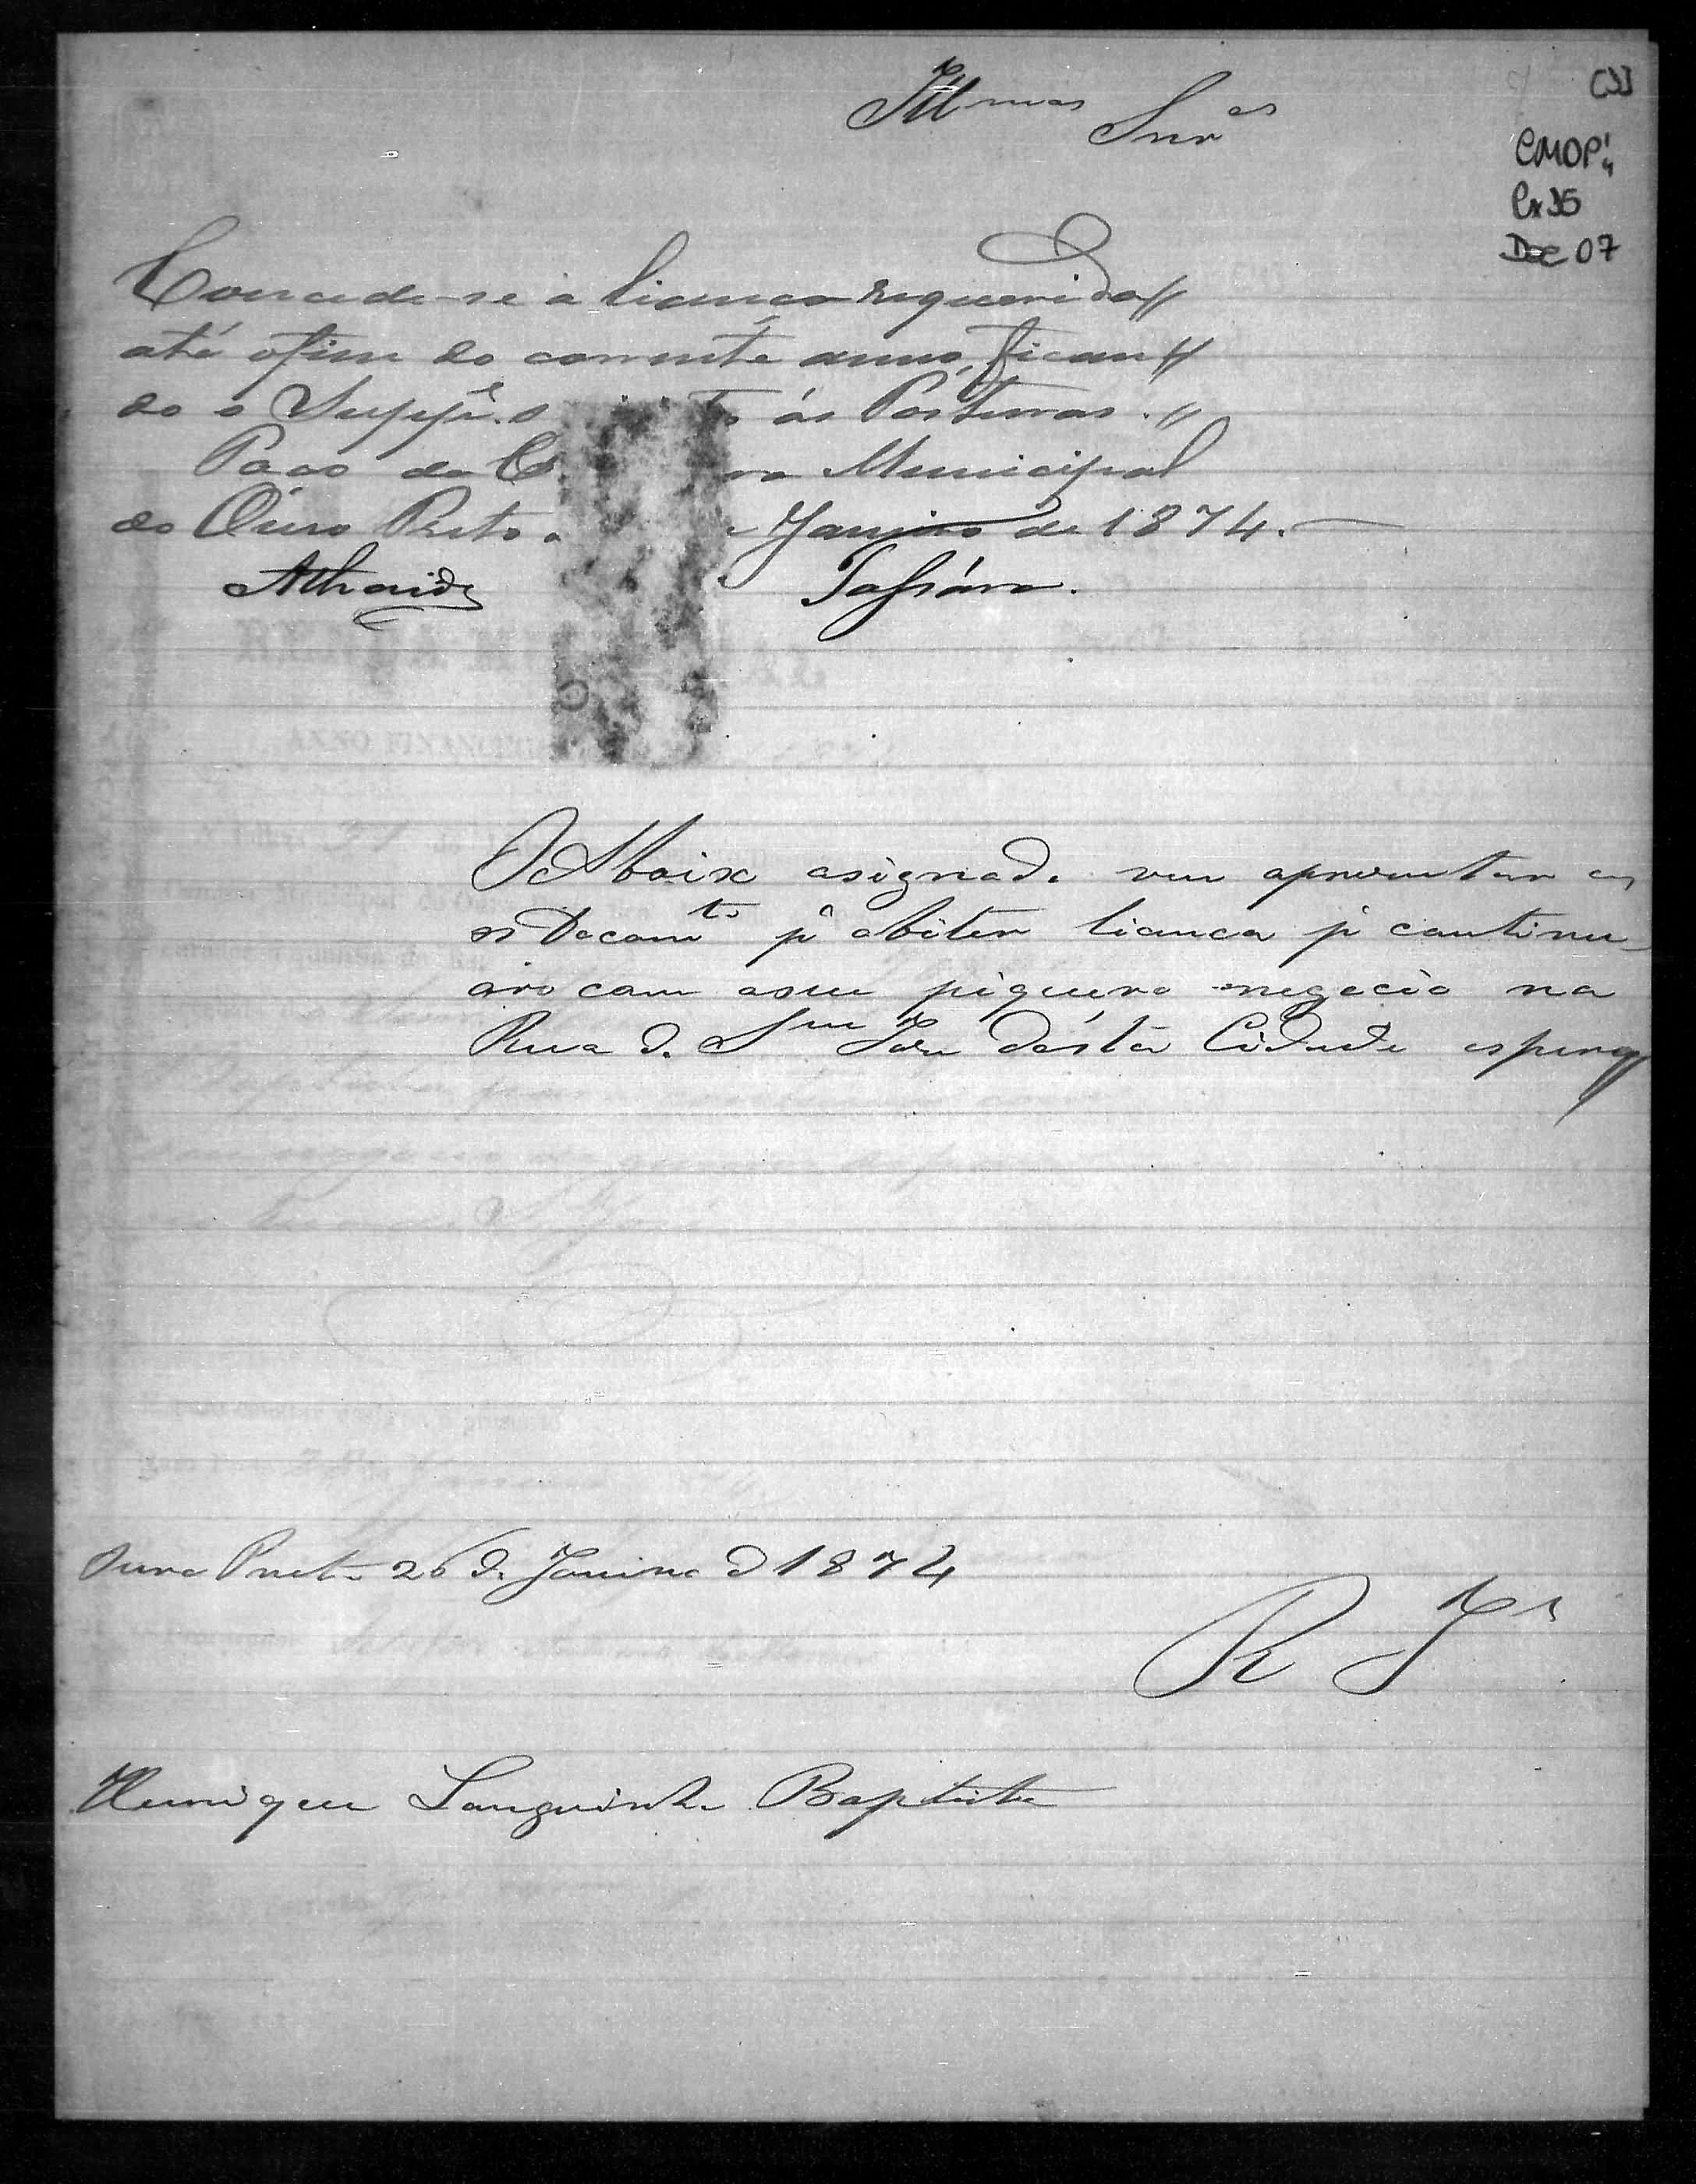 Illmos Snres
[3]
CMOP
Cx 35
Doc 07
Concede-se a licença requerida //
até o fim do corrente anno, fican //
do o Suppe. ás Posturas. //
Paço da Municipal
do Ouro Preto Janeiro de 1874.
Athaide
O Abaixo asignado vem apresentar
os Docomto pa obiter licenca pa continu
com aseu piqueno negocio na
Rua de Sm José desta Cidade espera
Ouro Preto 26 de Janeiro d 1874
R
Henrique Baptista